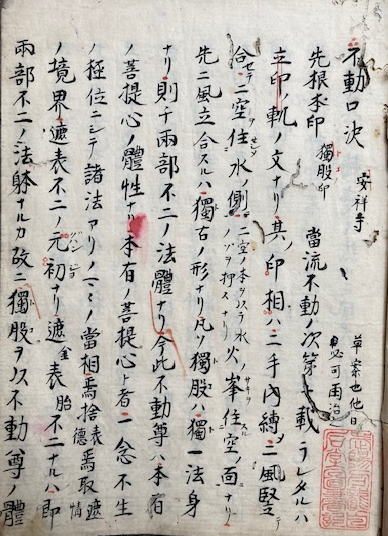 不動口决 安祥寺
草案也他日
必可再治
先根本印 獨股印 當流不動ノ次第ニ載ラレタルハ
立印ノ軌ノ文ナリ其ノ印相ハ二手内縛メ二風竪テ
合セテ二空住水ノ側ニ空ノ本ヲスラ水火ノ峯住空ノ面ナリ
先ニ風立合スルハ獨古ノ形ナリ凡ソ獨股ハ獨一法身
ナリ則チ兩部不二ノ法體ナリ今此不動尊ハ本有
ノ菩提心ノ體性ナリ本有ノ菩提心ト者一念不生
ノ極位ニシテ諸法アリノマヽノ當相焉捨表德焉取遮情
ノ境界遮表不二ノ元初ナリ遮金表胎不二ナルハ即
兩部不二ノ法躰ナルカ故ニ獨股ヲ以不動尊ノ體